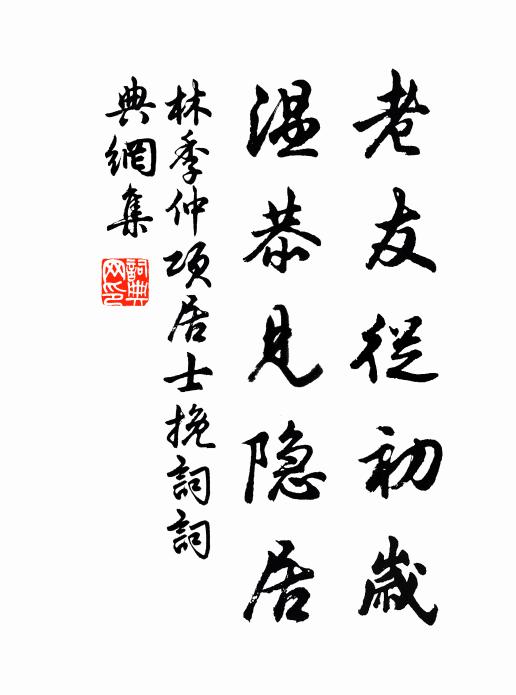 老友從初歲
温恭見隐居
林季仲項居士挽詞詞
典網集
詞典网印